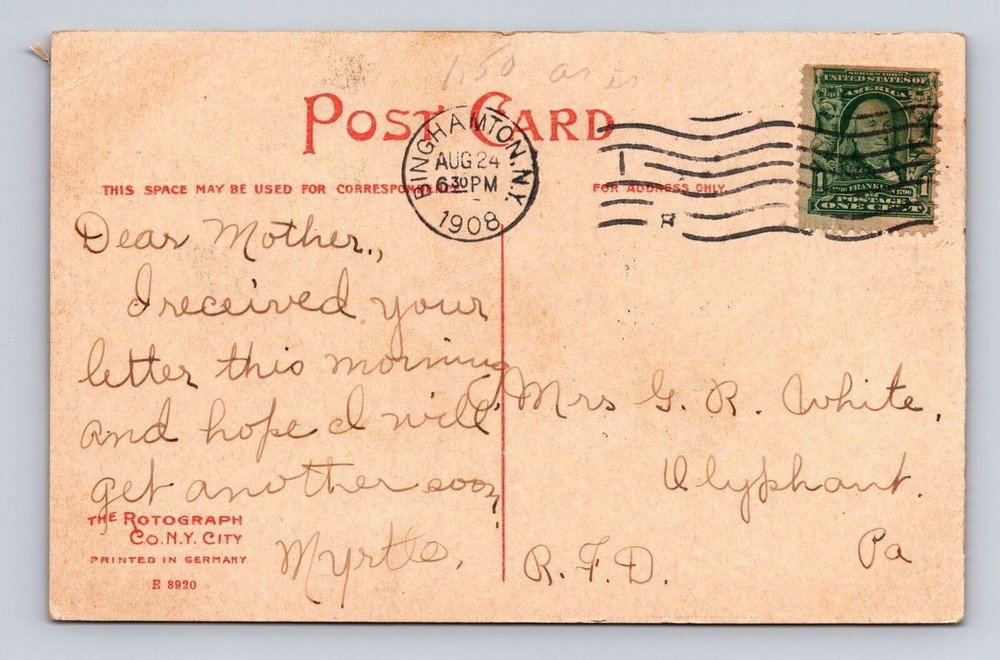 1.50 as is
POST CARD
BINGHAMTON, N.Y.
AUG 24
6 30 PM
1908
1
SERIES 1902
UNITED STATES OF
AMERICA
1 FRANKLIN 1
POSTAGE
ONE CENT
THIS SPACE MAY BE USED FOR CORRESPONDENCE
FOR ADDRESS ONLY.
Dear Mother.,
I received your
letter this morning
and hope I will
get another soon
Myrtle.
THE ROTOGRAPH
CO. N.Y. CITY
PRINTED IN GERMANY
E 8920
Mrs G. R. White.
Olyphant.
Pa
R. F. D.